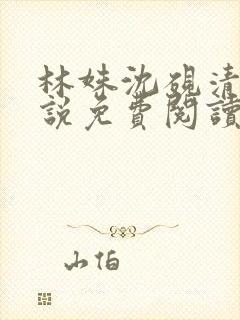 林妹沈硯清
說免費閱讀
山伯